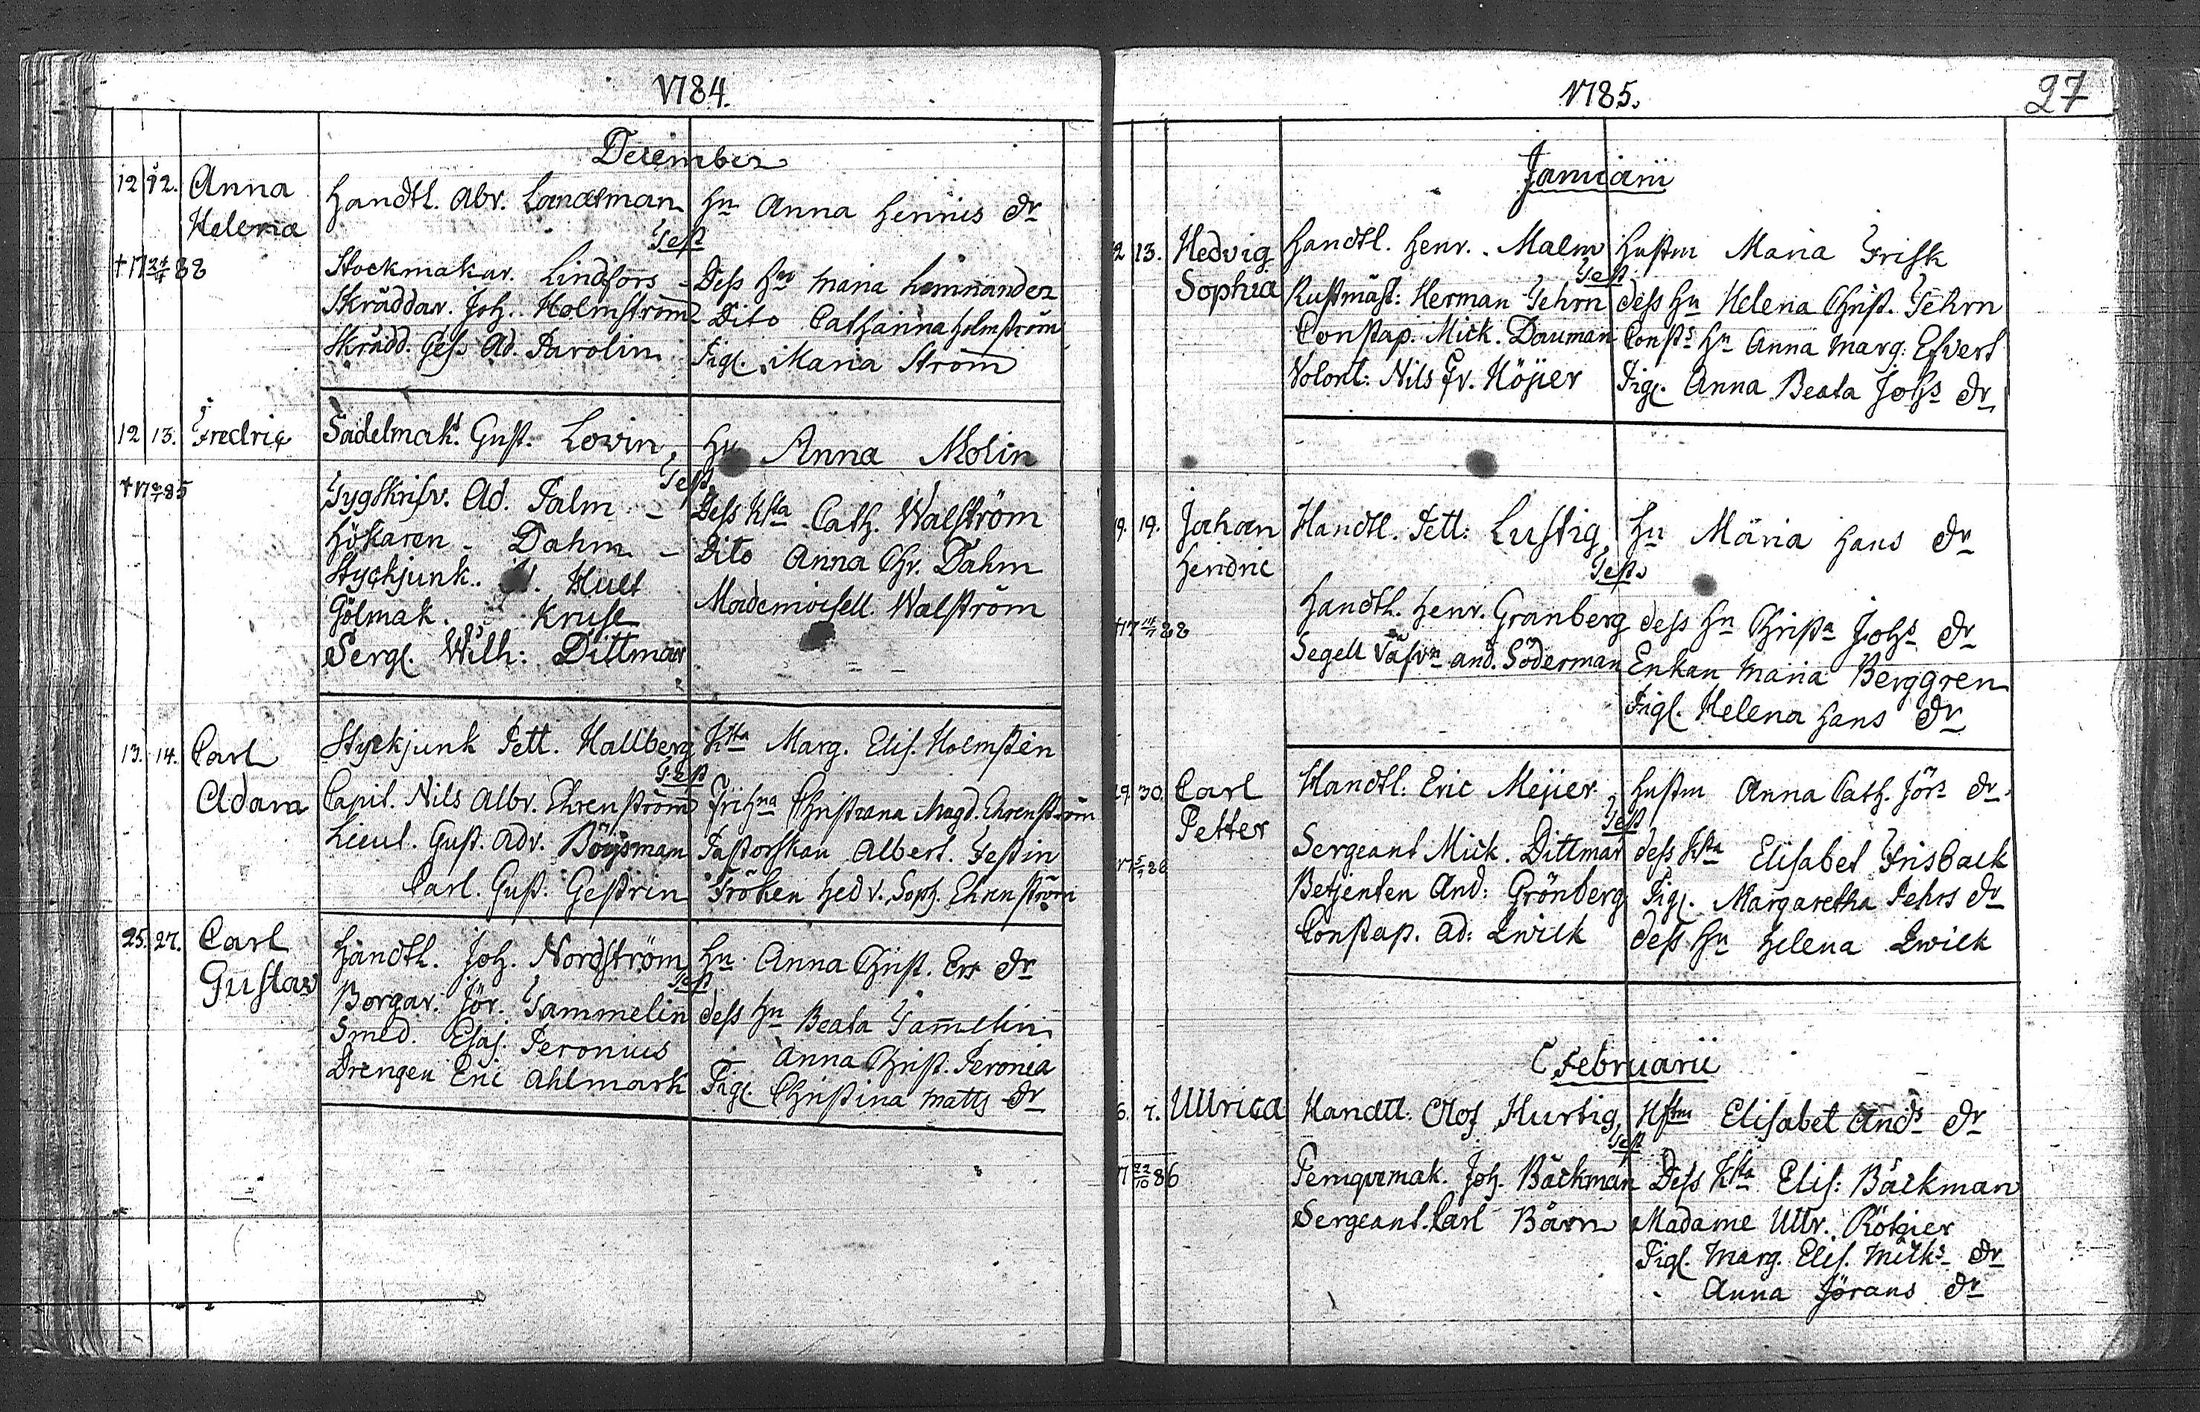 1784.
December
12 12. Anna Helena
Handtl. Abr. Landtman Hu Anna Henrics dr
Test
†17 88
Stockmakar. Lindfors - Dess Hu Maria Limnander
Skräddar. Joh. Holmström Dito Catharina Holmström
Skrädd. Gess Ad. Parolin Pigl. Maria Ström
12 13. Fredric
Sadelmak. Gust. Lovin Hu Anna Molin
Test
†17 85
Tygskrifv. Ad. Palm - Dess Kta Cath. Walström
Hökaren - Dahm - Dito Anna Chr. Dahm
Styckjunk. Hult Mademoisell. Walström
Gölmak. Kruse
Serg. Wilh: Dittmar
13. 14. Carl Adam
Styckjunk Pett. Hallberg Kta Marg. Elis. Holmsten
Test
Capit. Nils Albr. Ehrenström Frih Christiana Magd. Ehrenström
Lieut. Gust. Adr. Böijsman Pastorskan Albert. Festin
Carl. Gust. Gestrin Fröken Hedv. Soph. Ehrenström
25. 27. Carl Gustav
Handtl. Joh. Nordström Hu Anna Christ. Ers dr
Test
Borgar. Jör. Tammelin dess Hu Beata Tammelin
Smed. Esaj. Feronius Anna Christ. Feronia
Drengen Eric Ahlmark Pigl. Christina Matts dr
1785.
27
Januarii
2 13. Hedvig Sophia
Handtl. Henr. Malm Hustru Maria Frisk
Test
Rustmäst: Herman Fehrn dess Hu Helena Christ. Fehrn
Constap. Mick. Dauman Const: Hu Anna Marg. Efvert
Volont: Nils Fr. Höijer Pigl. Anna Beata Johs dr
19. 19. Johan Henric
Handtl. Pett: Lustig Hu Maria Hans dr
Test.
Handtl. Henr. Granberg dess Hu Christa Johs dr
†17 88
Segell And. Söderman Enkan Maria Berggren
Pigl. Helena Hans dr
29. 30. Carl Petter
Handtl: Eric Meijer Hustru Anna Cath. Jörs dr
Test
Sergeant Mick. Dittmar dess Kta Elisabet Frisback
17 86
Betjenten And: Grönberg Pigl. Margaretha Pehrs dr
Constap. Ad: Qwick dess Hu Helena Qwick
Februarii
6. 7. Ullrica
Handtl: Olof Hurtig, Elisabet Ands dr
Test
17 22/10 86
Perruqvemak. Joh. Bäckman Dess Kta Elis: Bäckman
Sergeant. Carl Bärn Madame Ullr. Rötgier
Pigl. Marg. Elis. Micks dr
Anna Jörans dr